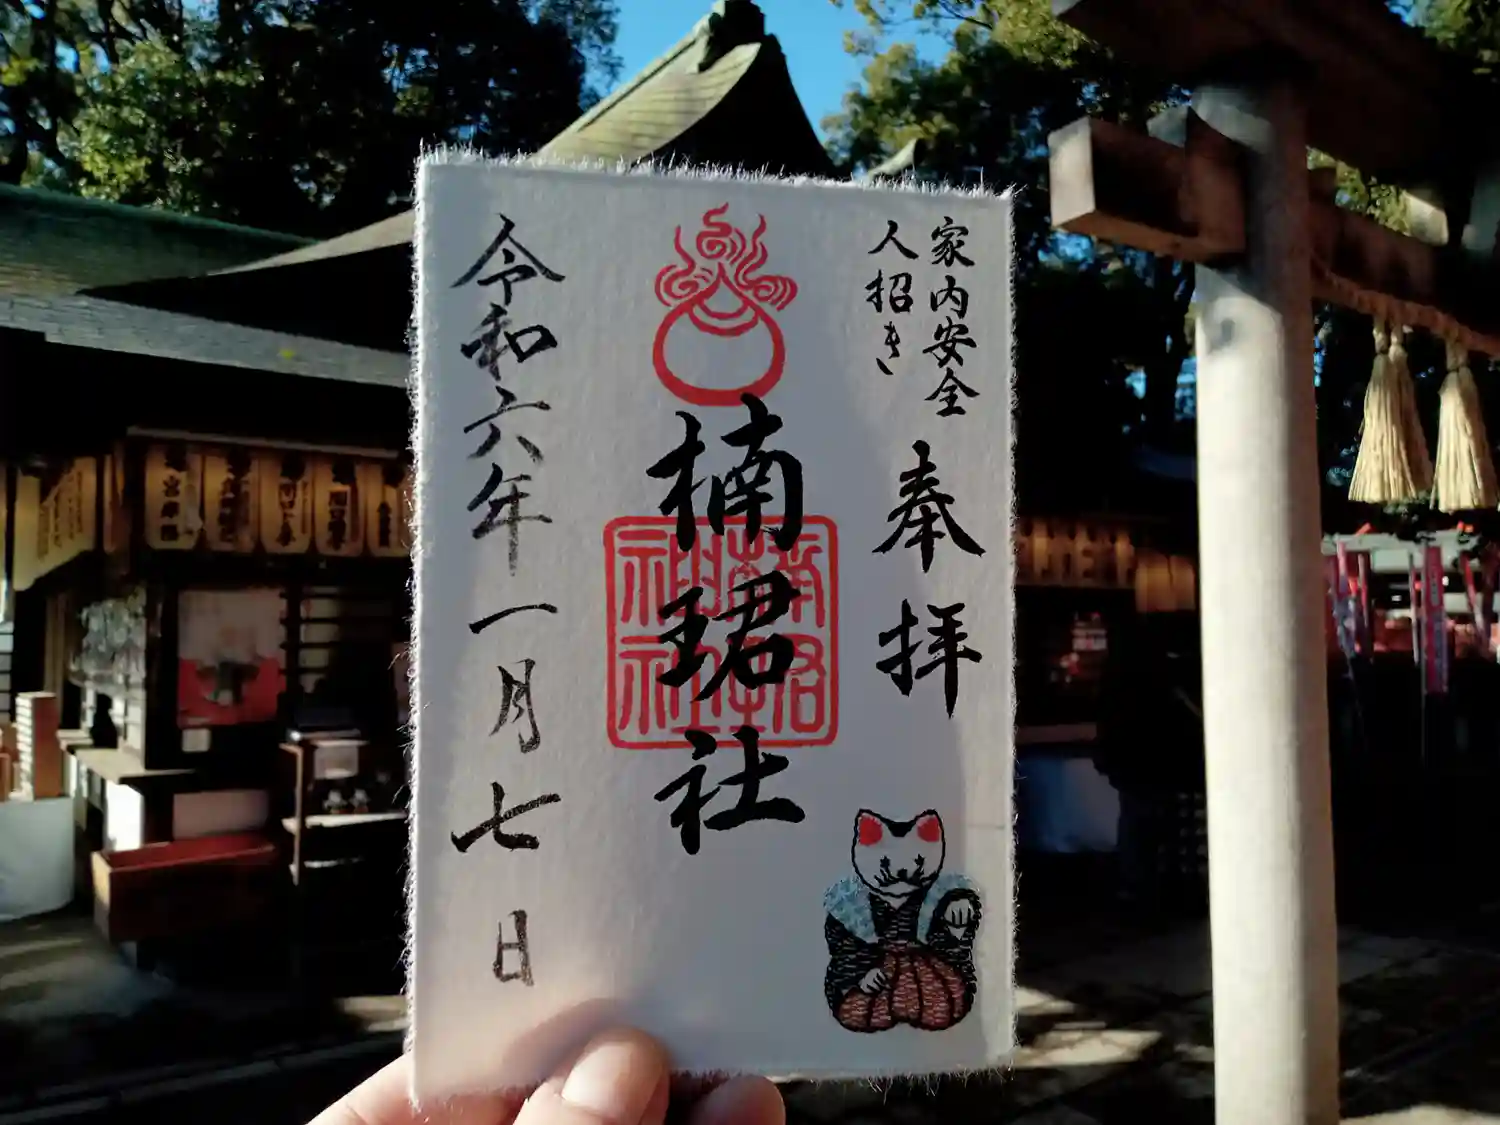 家内安全
人招き
奉拝
楠珺社
楠珺社神
令和六年一月七日